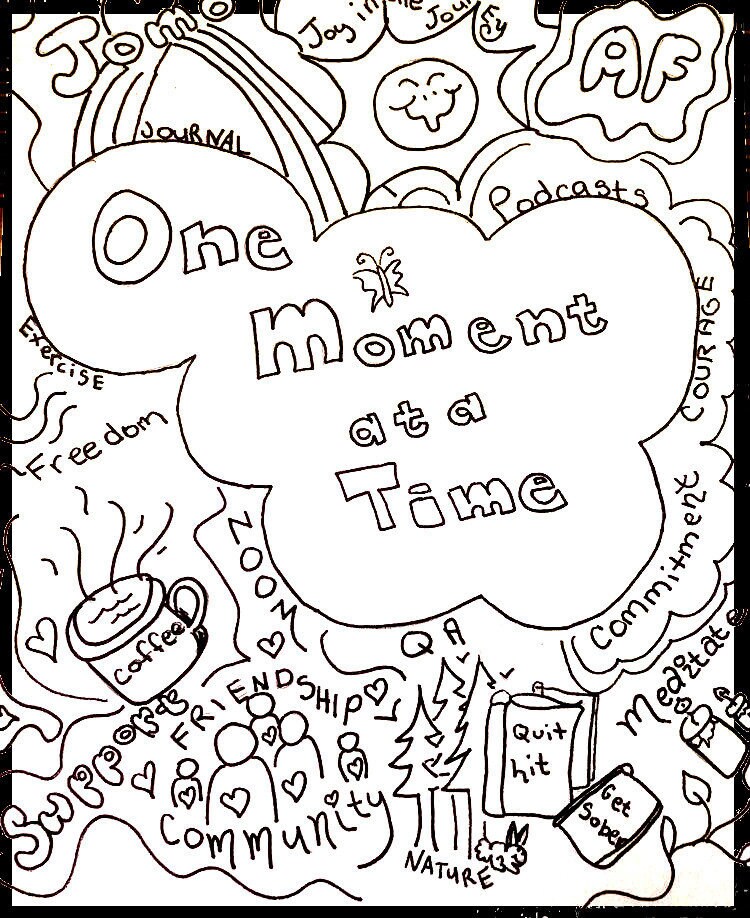 Jomo
Joy in
AF
JOURNAL
Podcasts
One
Moment
at a
Time
COURAGE
Exercise
Freedom
ZOOM
Commitment
QA
Meditate
Coffee
Support
FRIENDSHIP
Community
NATURE
Quit
hit
Get
Sober